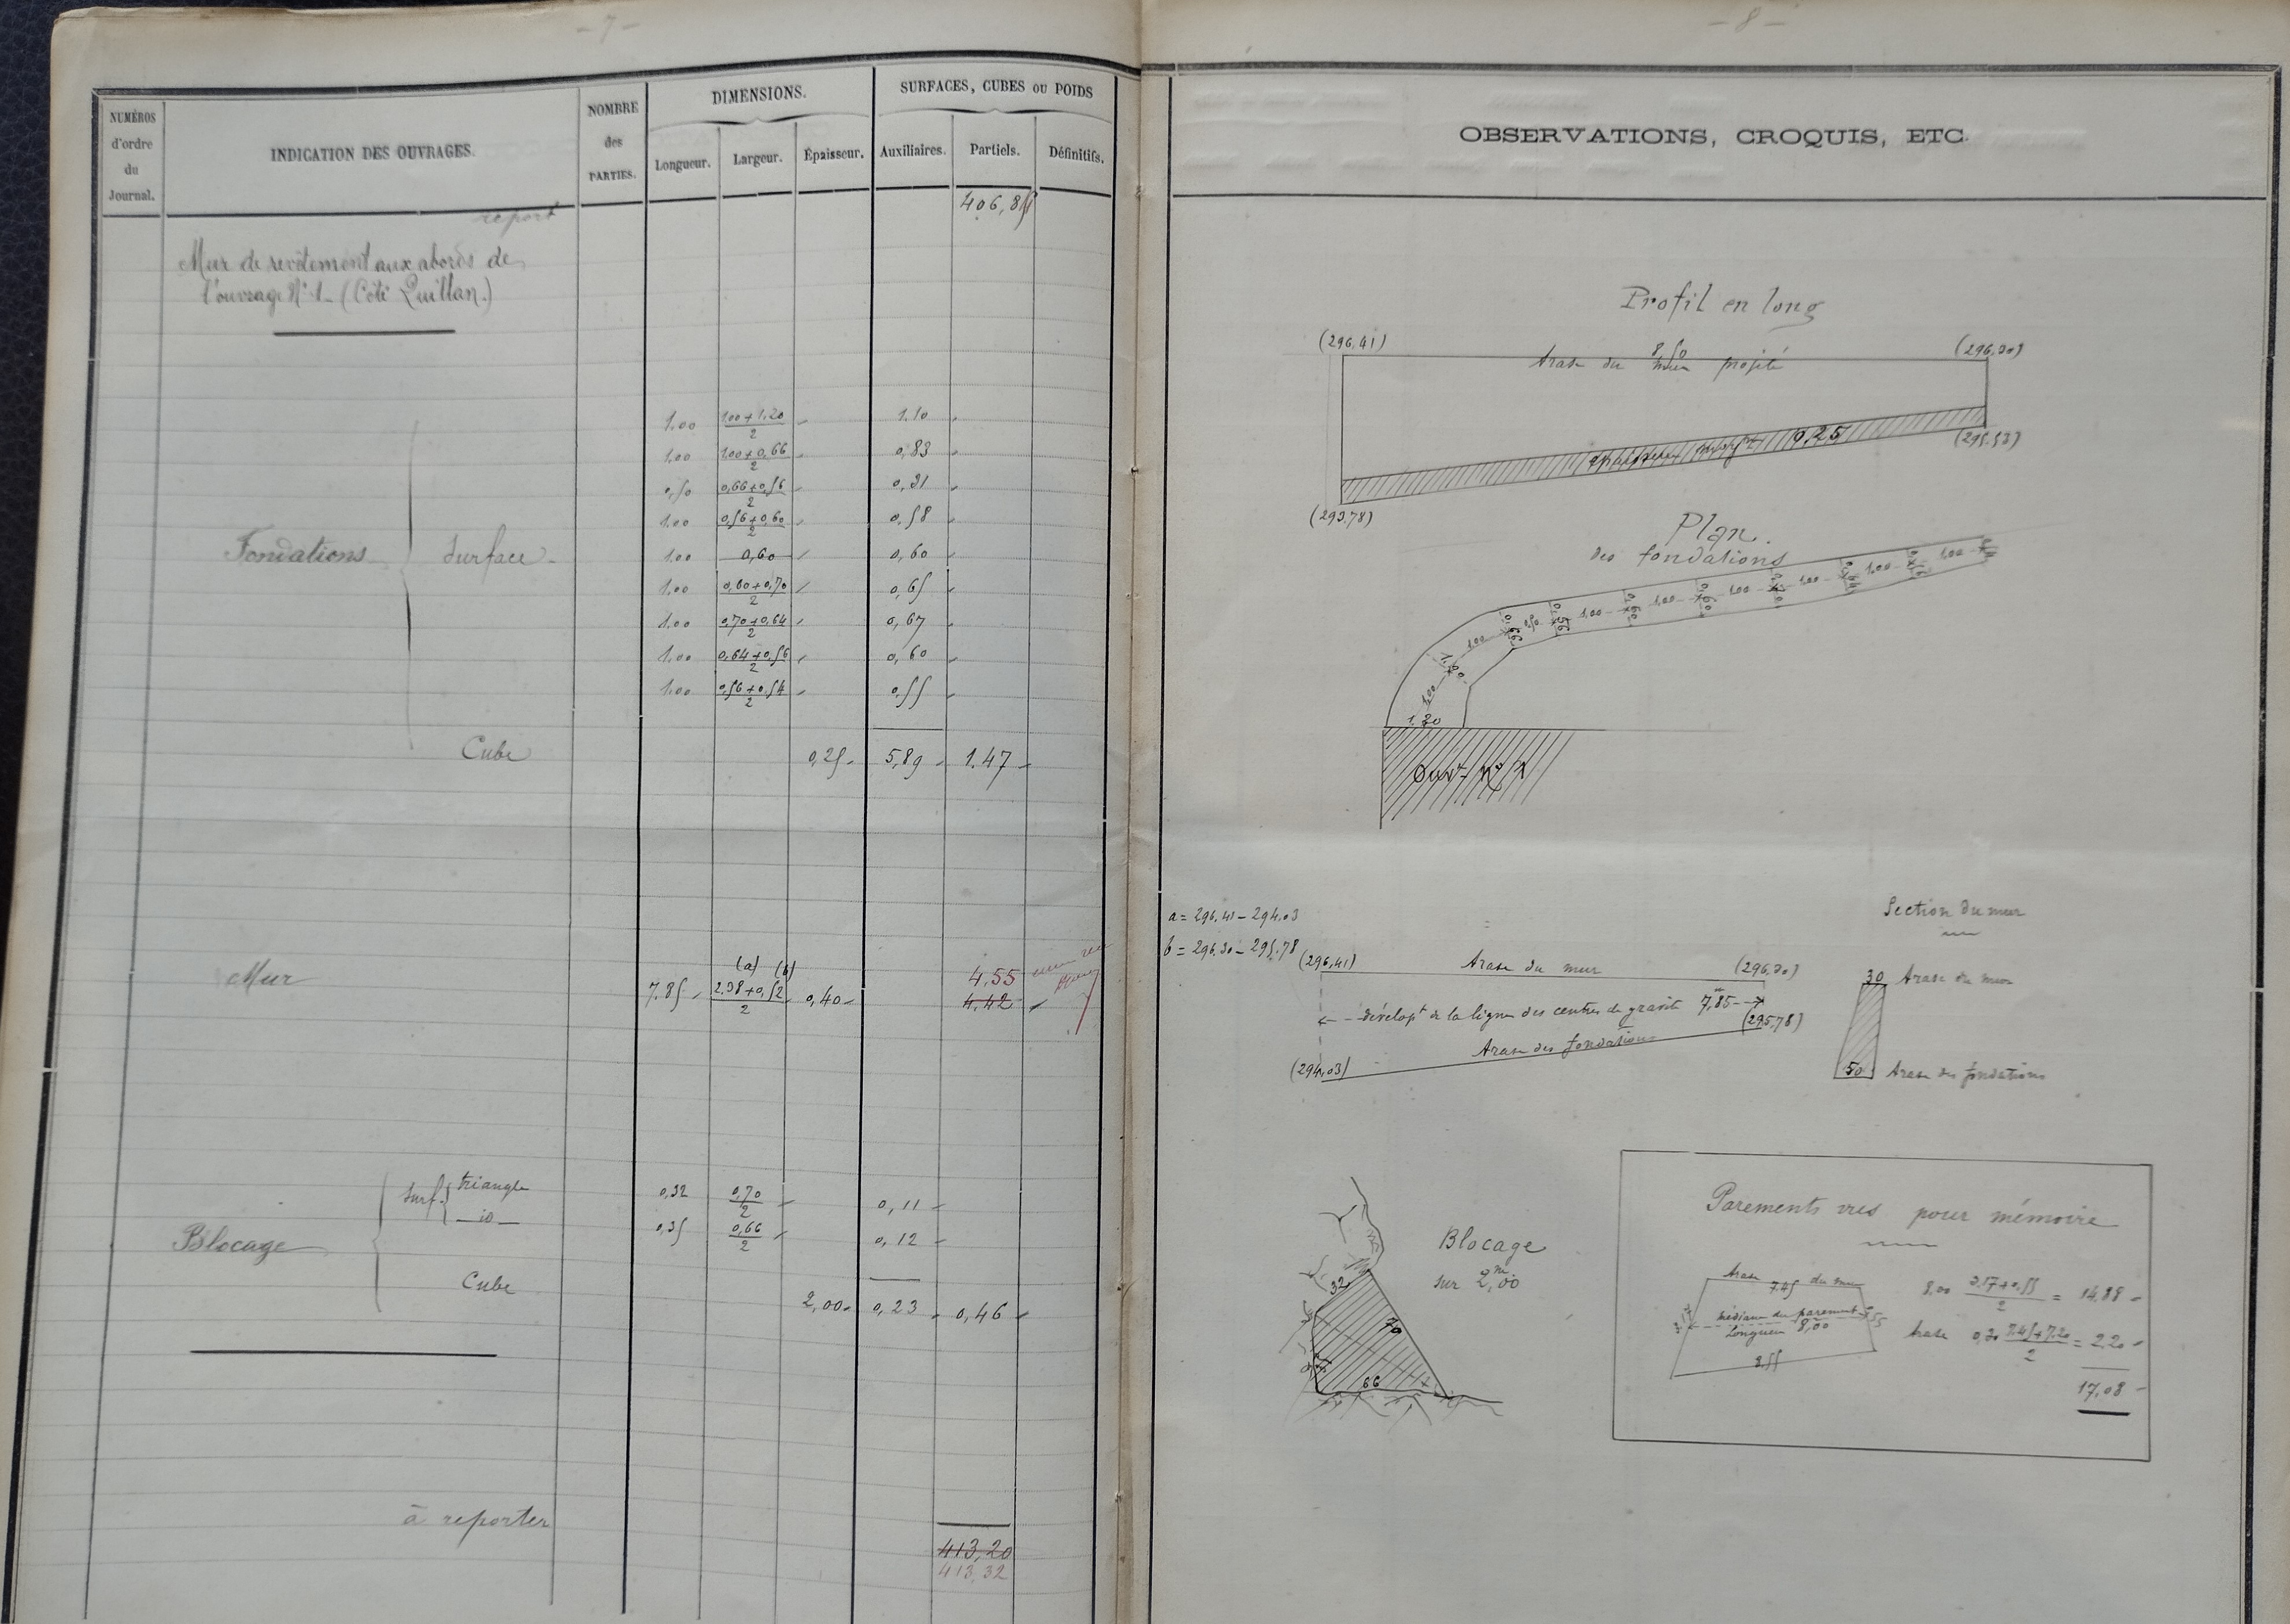 - 7 -
NUMÉROS
d'ordre
du
Journal.
INDICATION DES OUVRAGES.
NOMBRE
des
PARTIES.
DIMENSIONS.
Longueur. Largeur. Épaisseur.
SURFACES, CUBES OU POIDS
Auxiliaires. Partiels. Définitifs.
report 406,84
Mur de revêtement aux abords de
l'ouvrage N° 1 - (Côté Quillan.)
1.00 1.00+1.20/2 1.10
1.00 1.00+0,66/2 0,83
0,50 0,66+0,56/2 0,31
1.00 0,56+0,60/2 0,58
Fondations Surface 1.00 0,60 0,60
1.00 0,60+0,70/2 0,65
1.00 0,70+0,64/2 0,67
1.00 0,64+0,56/2 0,60
1.00 0,56+0,54/2 0,55
Cube 0,25 5,89 1.47
(a) (b)
4.55
Mur 7.85 2.38+0,52/2 0,40 4.42
Surf. triangle 0,32 0,70/2 0,11
- id - 0,35 0,66/2 0,12
Blocage
Cube 2,00 0,23 0,46
à reporter
413,20
413,32
- 8 -
OBSERVATIONS, CROQUIS, ETC.
Profil en long
(296,41) 8,50 (296,30)
Arase du mur projeté
0,25
(295.53)
(293.78)
Plan
des fondations
1.00 1.00 0,50 1.00 1.00 1.00 1.00 1.00 1.00
0,66 0,56 0,60 0,60 0,70
1.20
Ouv. N° 1
a = 296.41 - 294.03
b = 296.30 - 295.78
(296,41) Arase du mur (296,30)
dévelop.t de la ligne des centres de gravité 7,85
(295,78)
Arase des fondations
(294,03)
Section du mur
30 Arase du mur
50 Arase des fondations
Blocage
sur 2,m00
32
70
66
Parements vus pour mémoire
Arase 7.45 du mur
médiane du parement
Longueur 8,00
3.17
0.55
8.55
8,00 3,17+0,55/2 = 14,88
Arase 0,30 7.45+7.20/2 = 2,20
17,08